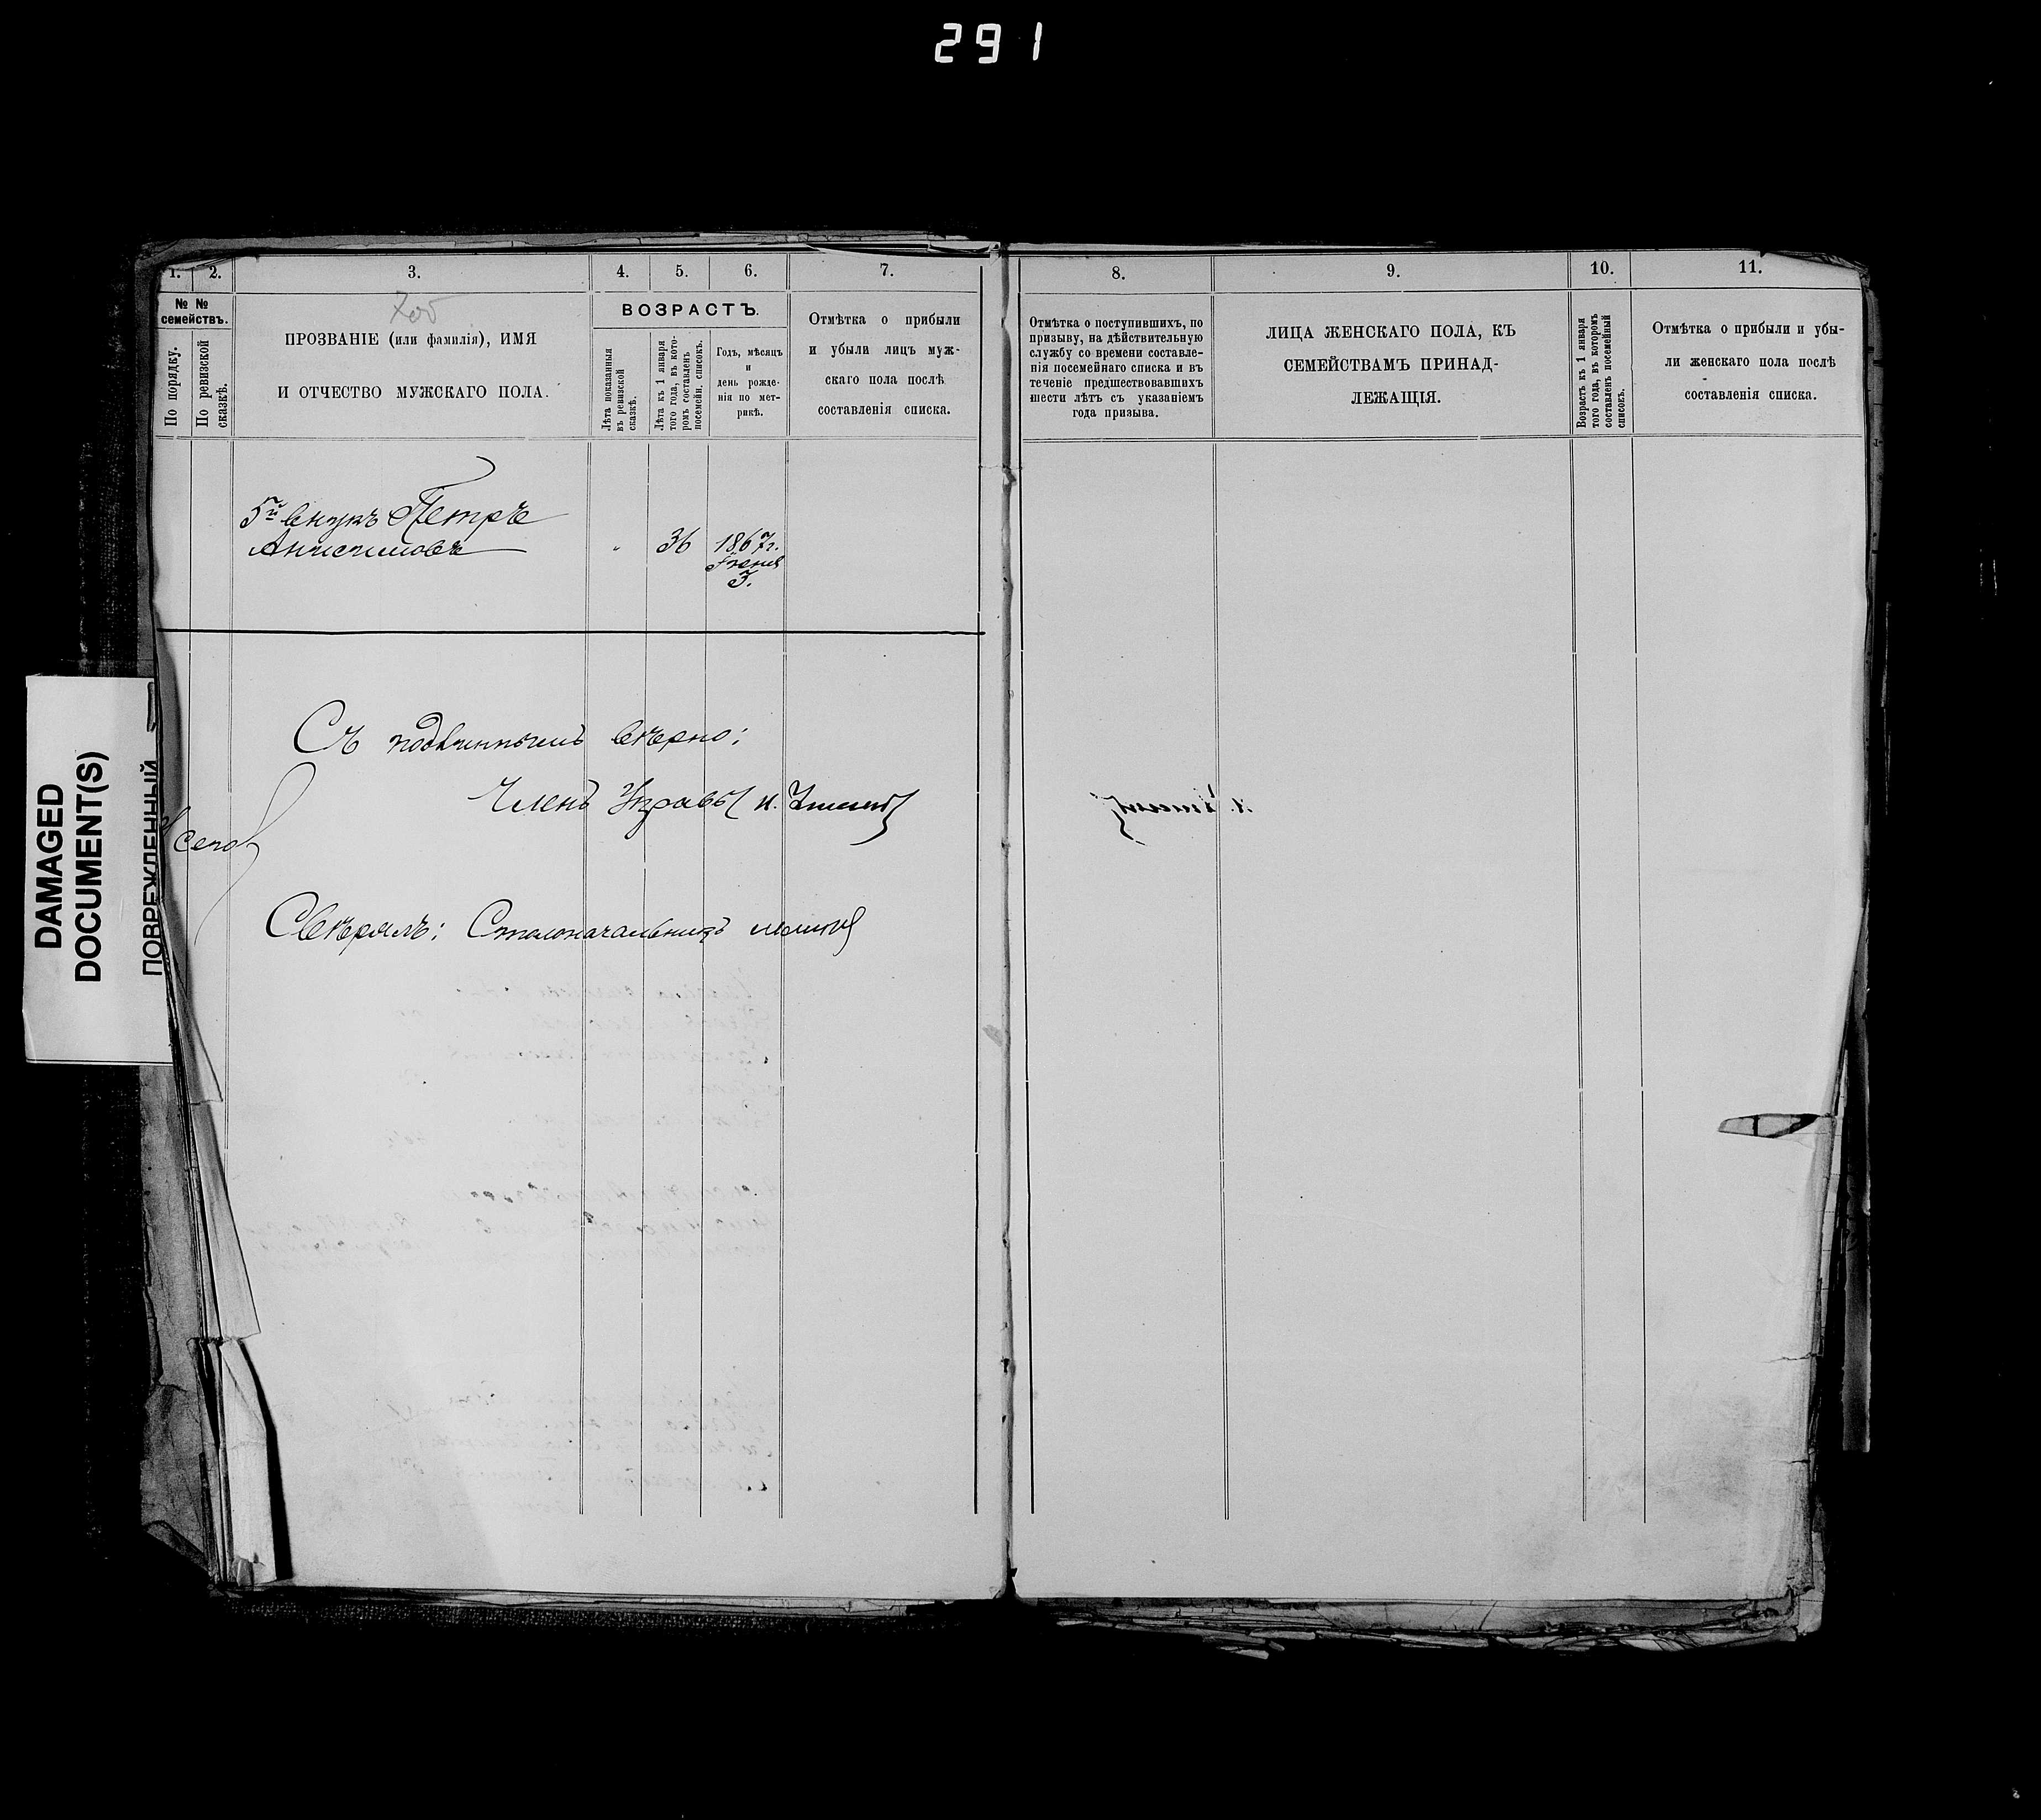 291
1.
2.
3.
4.
5.
6.
7.
№ №
семействъ.
По порядку.
По ревизской
сказкѣ.
ПРОЗВАНІЕ (или фамилія), ИМЯ
И ОТЧЕСТВО МУЖСКАГО ПОЛА.
ВОЗРАСТЪ.
Лѣта показанныя
въ ревизской
сказкѣ.
Лѣта къ 1 января
того года, въ кото-
ромъ составленъ
посемейн. списокъ.
Годъ, мѣсяцъ
и
день рожде-
нія по мет-
рикѣ.
Отмѣтка о прибыли
и убыли лицъ муж-
скаго пола послѣ
составленія списка.
5й внукъ Петръ
Анисимовъ
" 36 1867г.
Іюня
3.
Съ подлиннымъ вѣрно:
Членъ Управы
Свѣрялъ: Столоначальникъ
DAMAGED
DOCUMENT(S)
ПОВРЕЖДЕННЫЙ
8.
9.
10.
11.
Отмѣтка о поступившихъ, по
призыву, на дѣйствительную
службу со времени составле-
нія посемейнаго списка и въ
теченіе предшествовавшихъ
шести лѣтъ съ указаніемъ
года призыва.
ЛИЦА ЖЕНСКАГО ПОЛА, КЪ
СЕМЕЙСТВАМЪ ПРИНАД-
ЛЕЖАЩІЯ.
Возрастъ къ 1 января
того года, въ которомъ
составленъ посемейный
списокъ.
Отмѣтка о прибыли и убы-
ли женскаго пола послѣ
составленія списка.